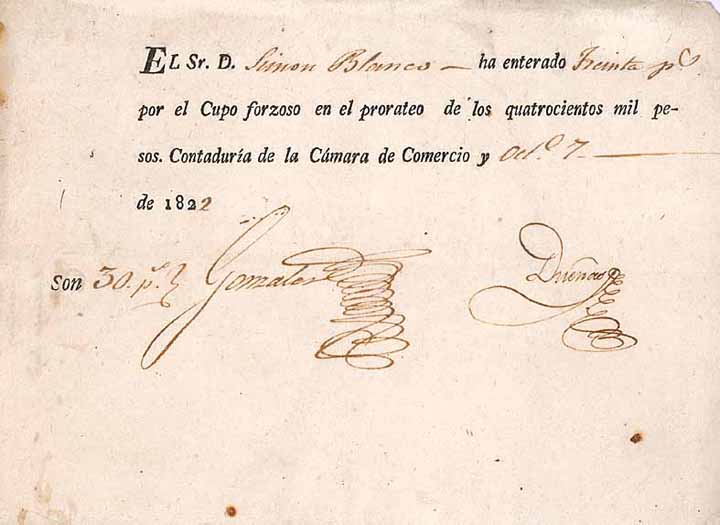 EL Sr. D. Simon Blanco ha enterado Treinta ps
por el Cupo forzoso en el prorateo de los quatrocientos mil pe-
sos. Contaduría de la Cámara de Comercio y Oct.e 7
de 1822
Son 30. ps. Gonzalez Dueñas